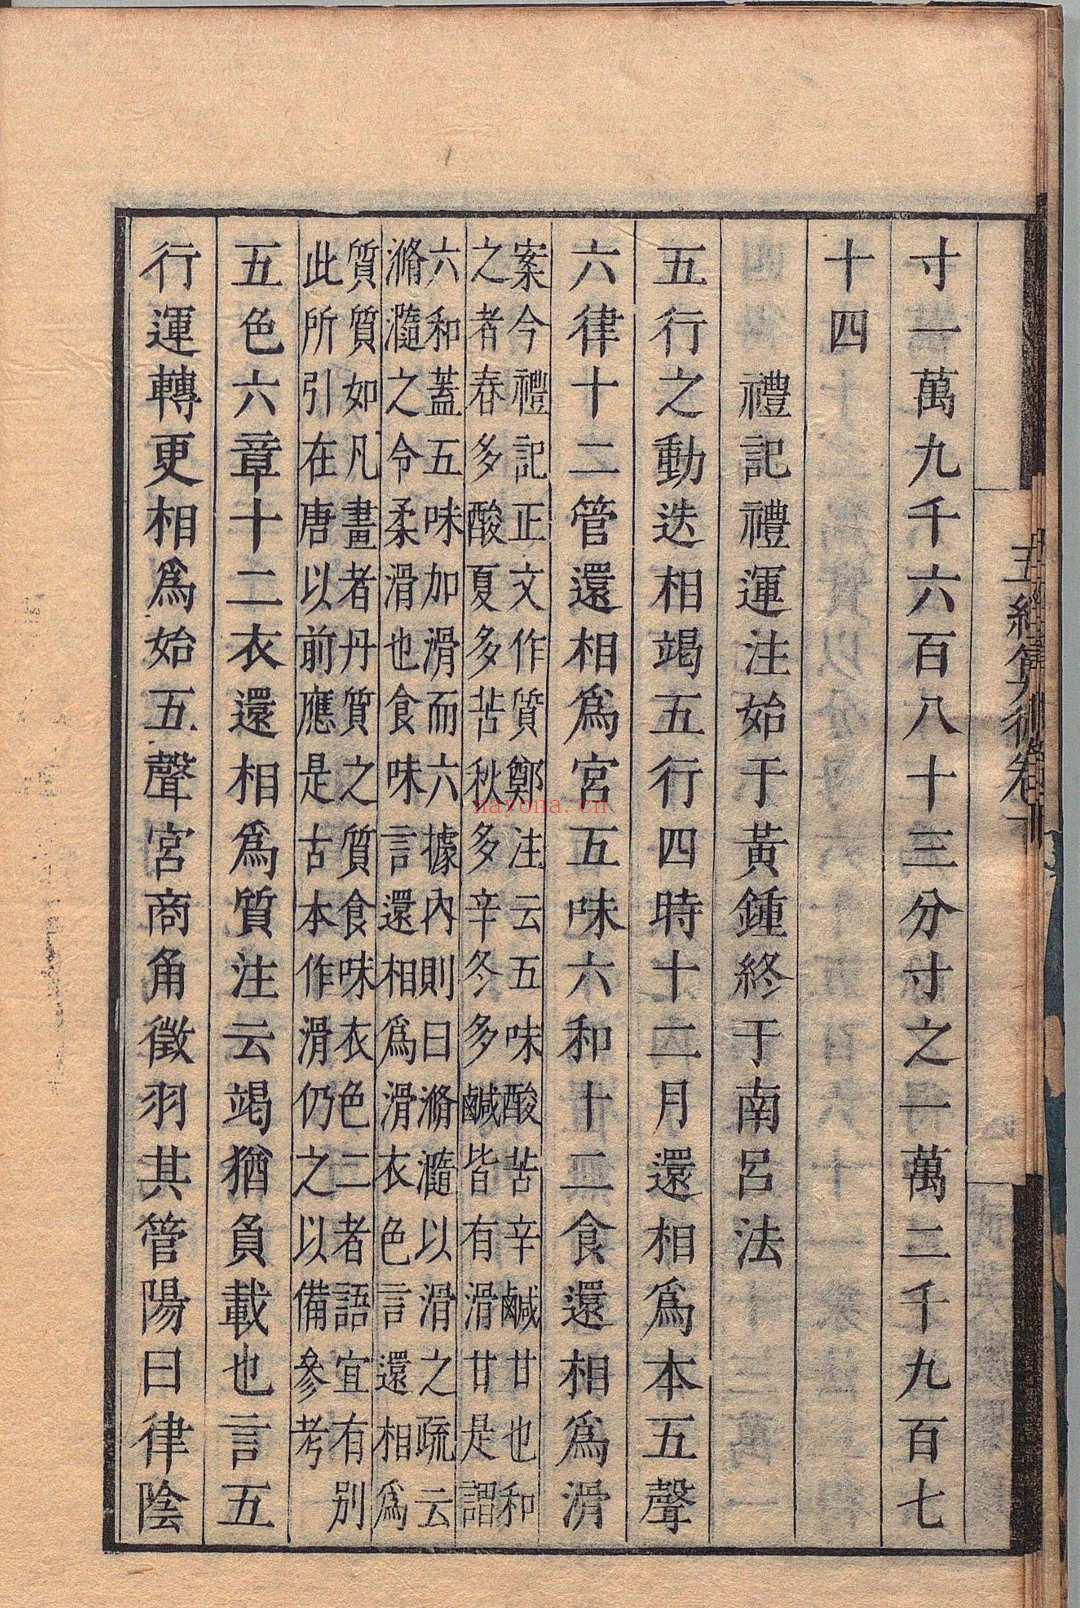 寸一萬九千六百八十三分寸之一萬二千九百七
十四
禮記禮運注始于黃鍾終于南呂法
五行之動迭相竭五行四時十二月還相爲本五聲
六律十二管還相爲宮五味六和十二食還相爲滑
案今禮記正文作質鄭注云五味酸苦辛鹹甘也和
之者春多酸夏多苦秋多辛冬多鹹皆有滑甘是謂
六和蓋五味加滑而六據內則曰滫瀡以滑之疏云
滫瀡之令柔滑也食味言還相爲滑衣色言還相爲
質質如凡畫者丹質之質食味衣色二者語宜有別
此所引在唐以前應是古本作滑仍之以備參考
五色六章十二衣還相爲質注云竭猶負載也言五
行運轉更相爲始五聲宮商角徵羽其管陽曰律陰
五經算術卷下
nayona.cn